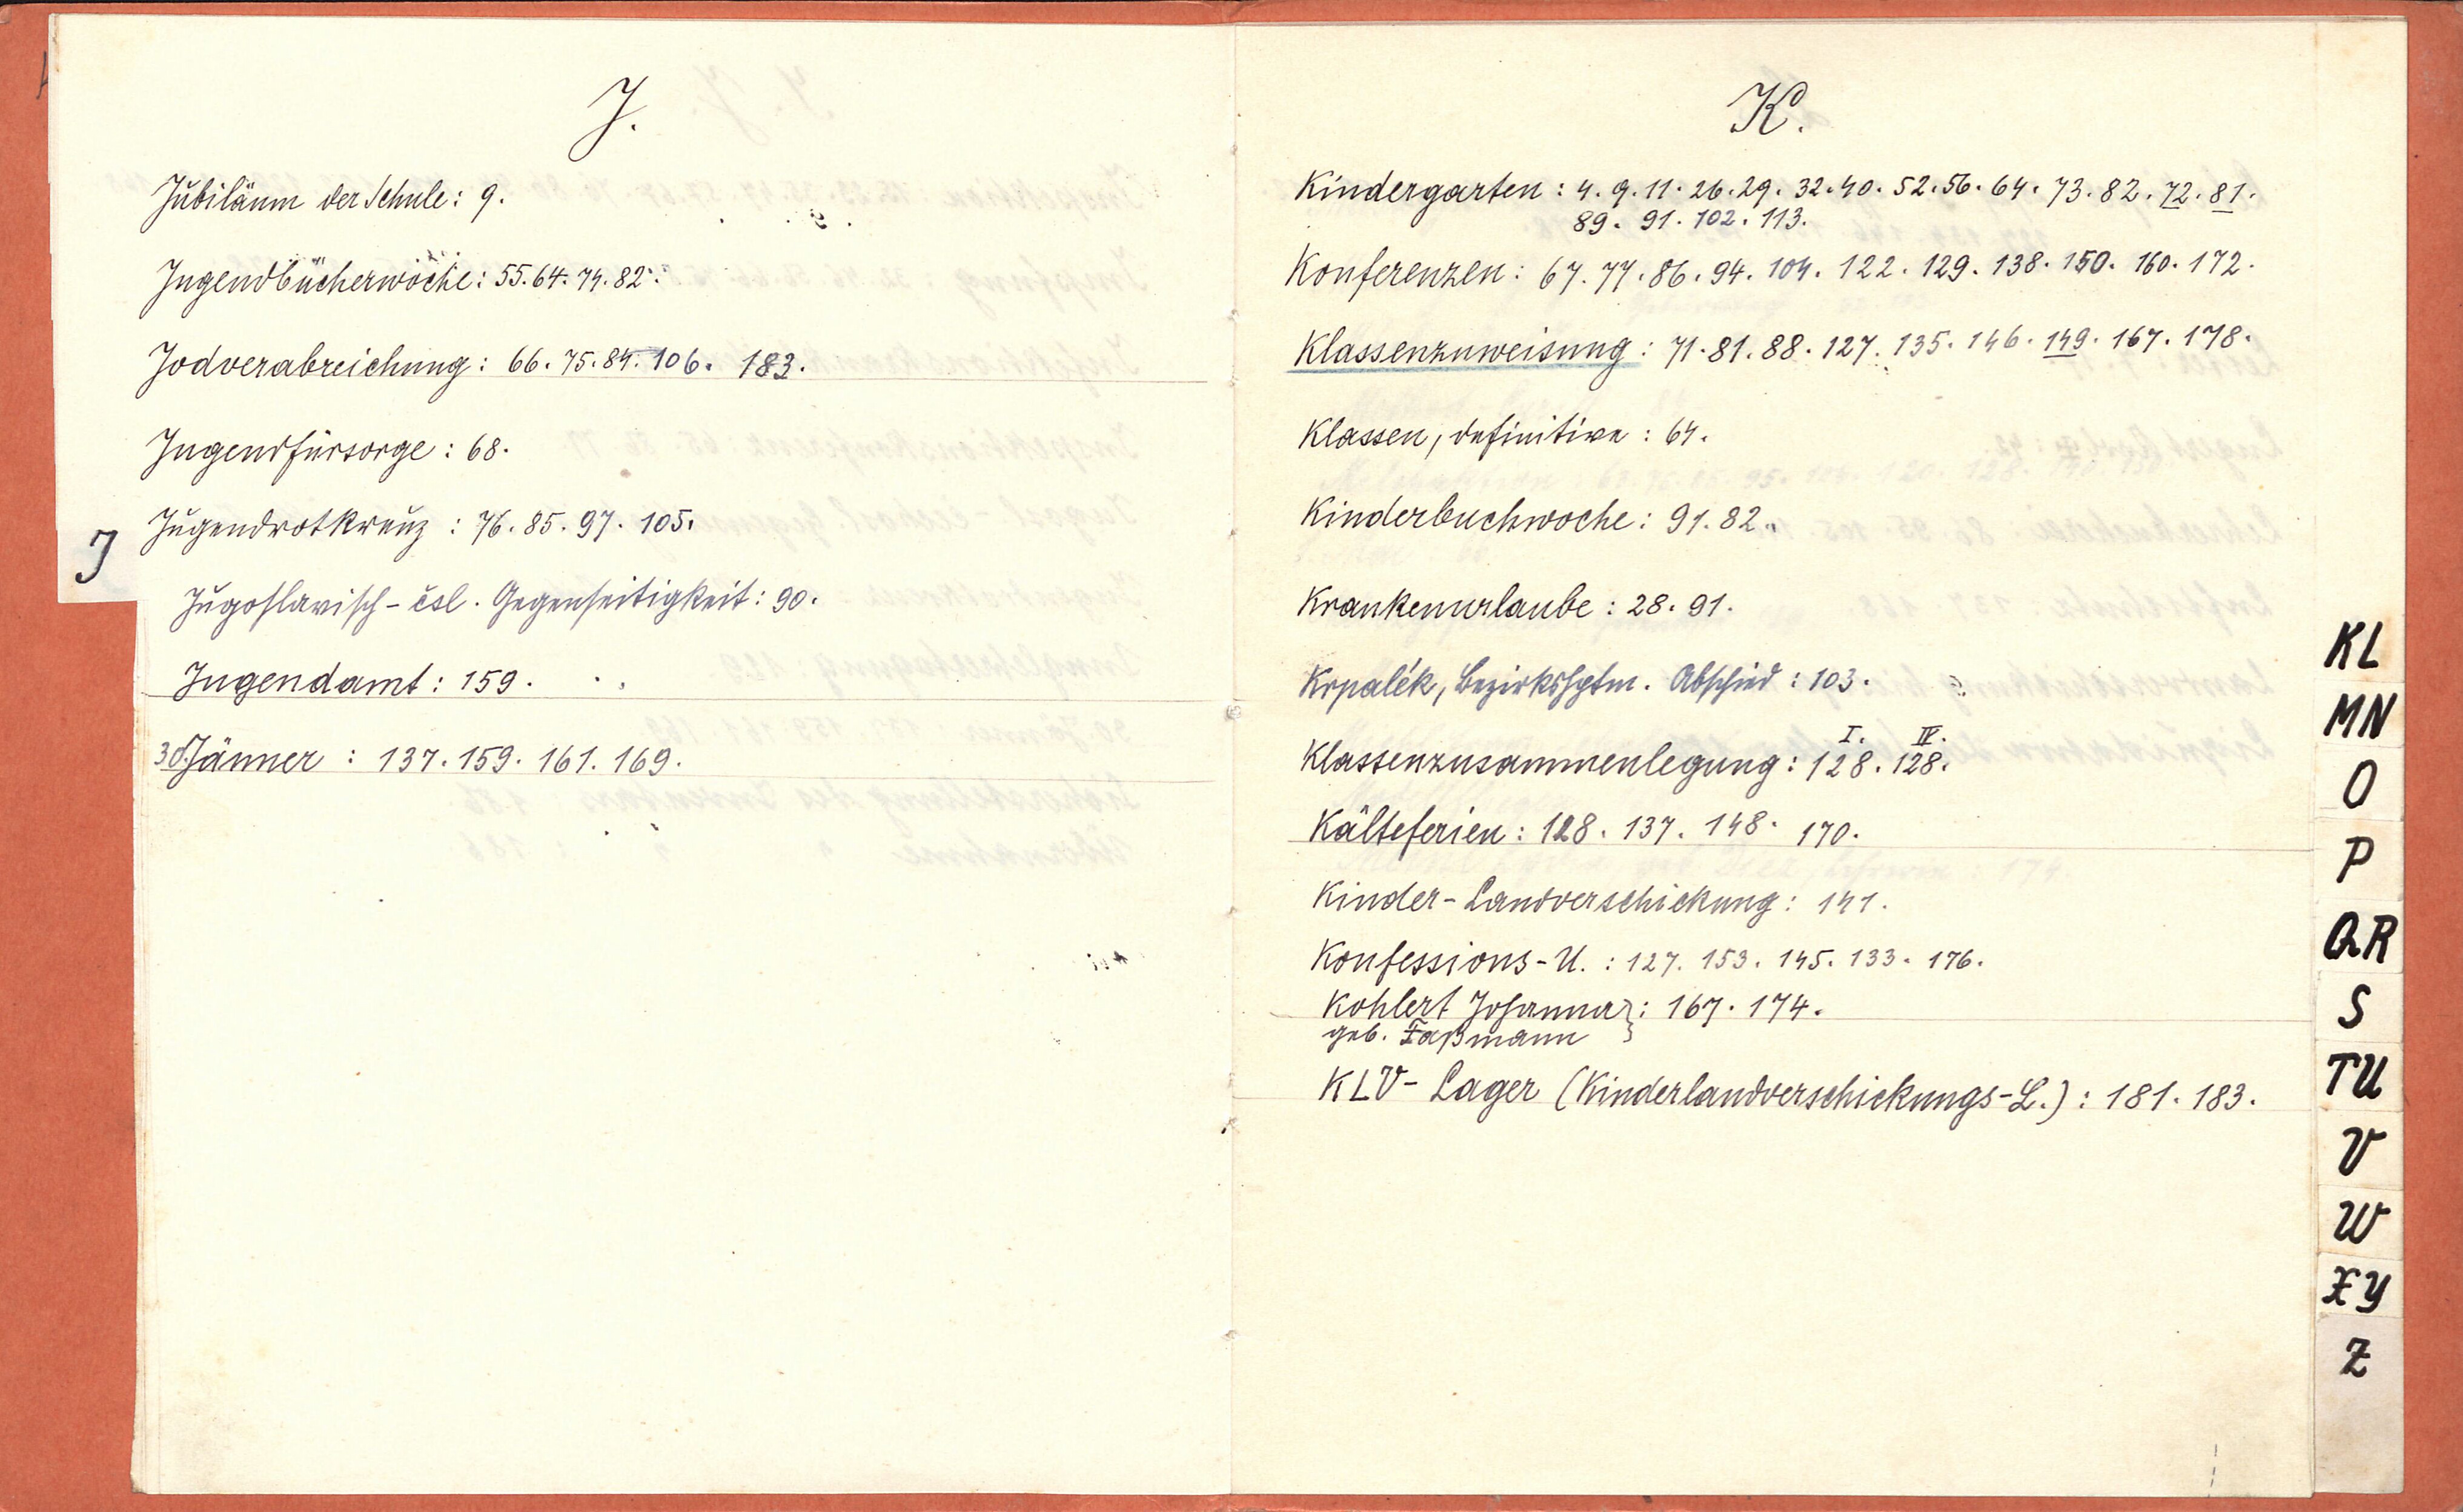 J.
Jubiläum der Schule: 9.
Jugendbücherwoche: 55. 64. 74. 82.
Jodverabreichung: 66. 75. 84. 106. 183.
Jugendfürsorge: 68.
Jugendrotkreuz: 76. 85. 97. 105.
J
Jugoslavisch-čsl. Gegenseitigkeit: 90.
Jugendamt: 159.
30. Jänner: 137. 159. 161. 169.
K.
Kindergarten: 4. 9. 11. 26. 29. 32. 40. 52. 56. 64. 73. 82. 72. 81.
89. 91. 102. 113.
Konferenzen: 67. 77. 86. 94. 104. 122. 129. 138. 150. 160. 172.
Klassenzuweisung: 71. 81. 88. 127. 135. 146. 149. 167. 178.
Klassen, definitive: 64.
Kinderbuchwoche: 91. 82.
Krankenurlaube: 28. 91.
Krpalék, Bezirkshptm. Abschied: 103.
I. IV.
Klassenzusammenlegung: 128. 128.
Kälteferien: 128. 137. 148. 170.
Kinder-Landverschickung: 141.
Konfessions-U.: 127. 153. 145. 133. 176.
Kohlert Johanna}: 167. 174.
geb. Faßmann
KLV-Lager (Kinderlandverschickungs-L.): 181. 183.
KL
MN
O
P
QR
S
TU
V
W
XY
Z